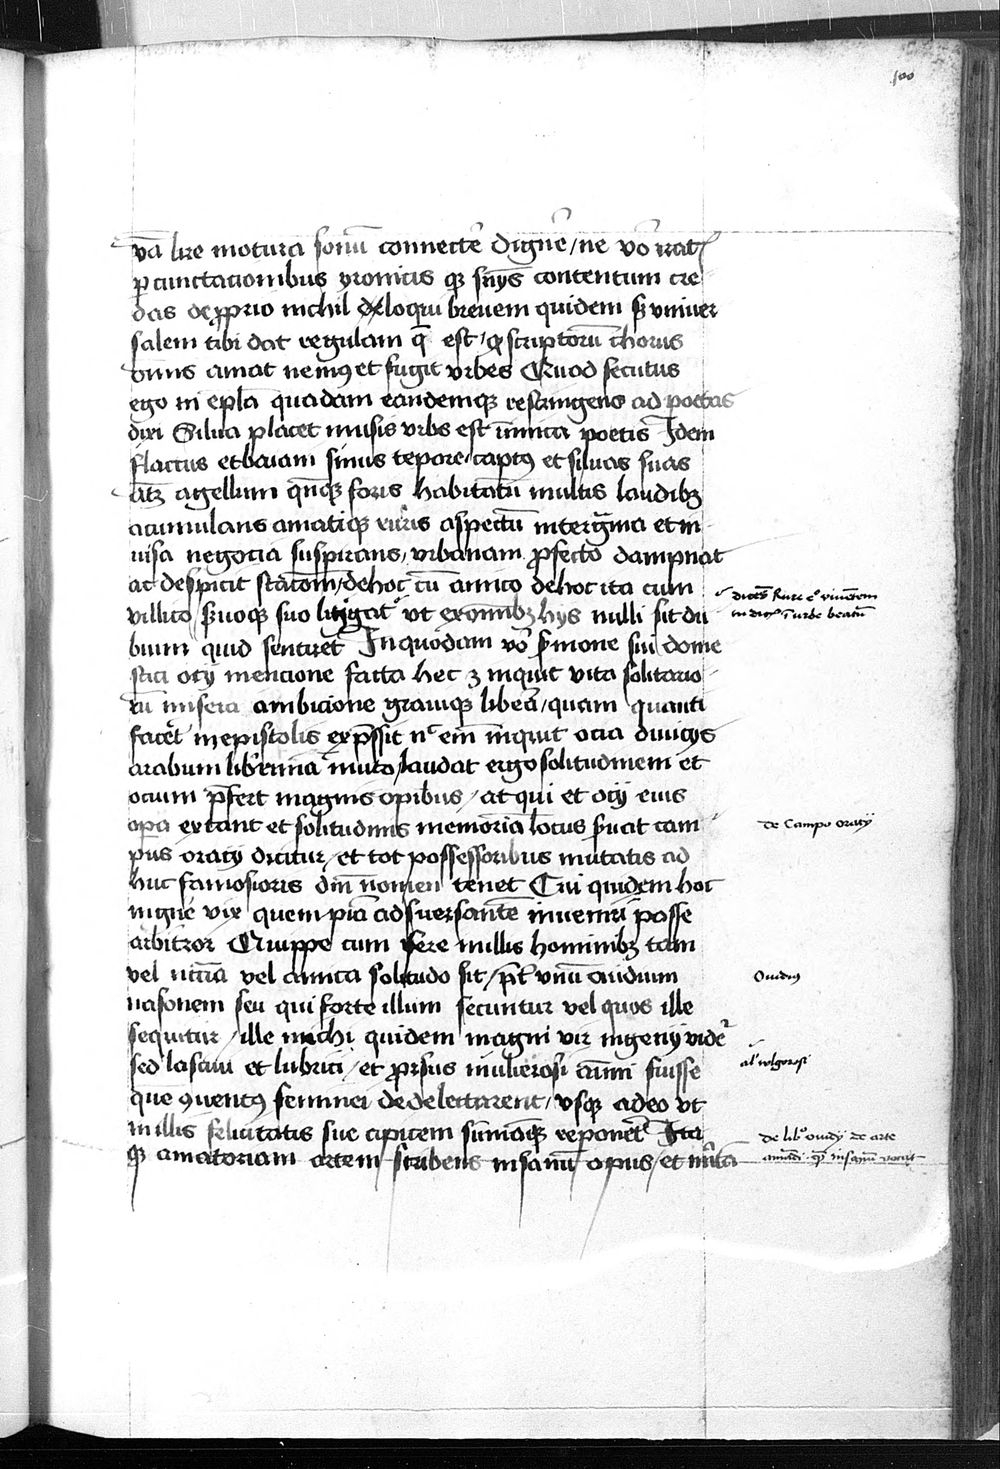 100
vā lire motura sonū connectē dignē / ne vō irat
ꝑcunctacionibus yronicis qꝫ sn̄ys contentum cre
das de ꝓprio nichil loqui breuem quidem sꝫ vniuer
salem tibi dat regulam q̄ est / ꝙ scriptorū chorus
om̄is amat nemꝰ et fugit vrbes Quod secutus
ego in epl̄a quadam eandemqꝫ restringens ad poetas
dixi Silua placet musis vrbs est inimica poetis Idem
flaccus et baiam sinus tepore captꝰ et siluas suas
atqꝫ agellum quinqꝫ foris habitatū multis laudibꝫ
acumulans amatiqꝫ ruris aspectū interg̃mina et in
uisa negocia suspirans / vrbanam ꝓfecto dampnat
ac despicit stac̄om̄ / de hoc cū amico de hoc ita cum
villico / seruoqꝫ suo litigat vt ex om̄ibꝫ hys nulli sit du
bium quid sentiret In quodam vō sermone sui dome
stici ocij mencione facta hec ꝫ inquit vita solutorꝫ
cū misera ambicione grauiqꝫ libera / quam quanti
facēt in epistolis exp̄ssit nᶜ em̄ inquit ocia diuicys
arabum liberrima muto / laudat ergo solitudinem et
ocium p̄fert magnis opibus / at qui et ocij eius
opera extant et solitudinis memoria locus seruat cam
pus oracij dicitur / et tot possessoribus mutatis ad
huc famosioris dn̄i nomen tenet Cui quidem hoc
in gn̄e vix quempiā aduersantē inueniri posse
arbitror Quippe cum fere nullis hominibꝫ tam
vel vel amica solitudo sit / p̄t vnū ouidium
nasonem seu qui forte illum secuntur vel quos ille
sequitur / ille michi quidem magni vir ingenij videt᷑
sed lasciui et lubrici / et ꝓrsus mulierosi animi fuisse
quē ꝯuentꝰ feminei delectarent / vsqꝫ adeo vt
in illis felicitatis sue apicem sūmāqꝫ reponēt Ita
qꝫ amatoriam artem scribens insanū opus / et
rure viuētem
in vrbe beatū
de Campo oracij
Ouidiꝰ
al' volgorosi
de libº ouidij de arte
amādi qē insanū vocat